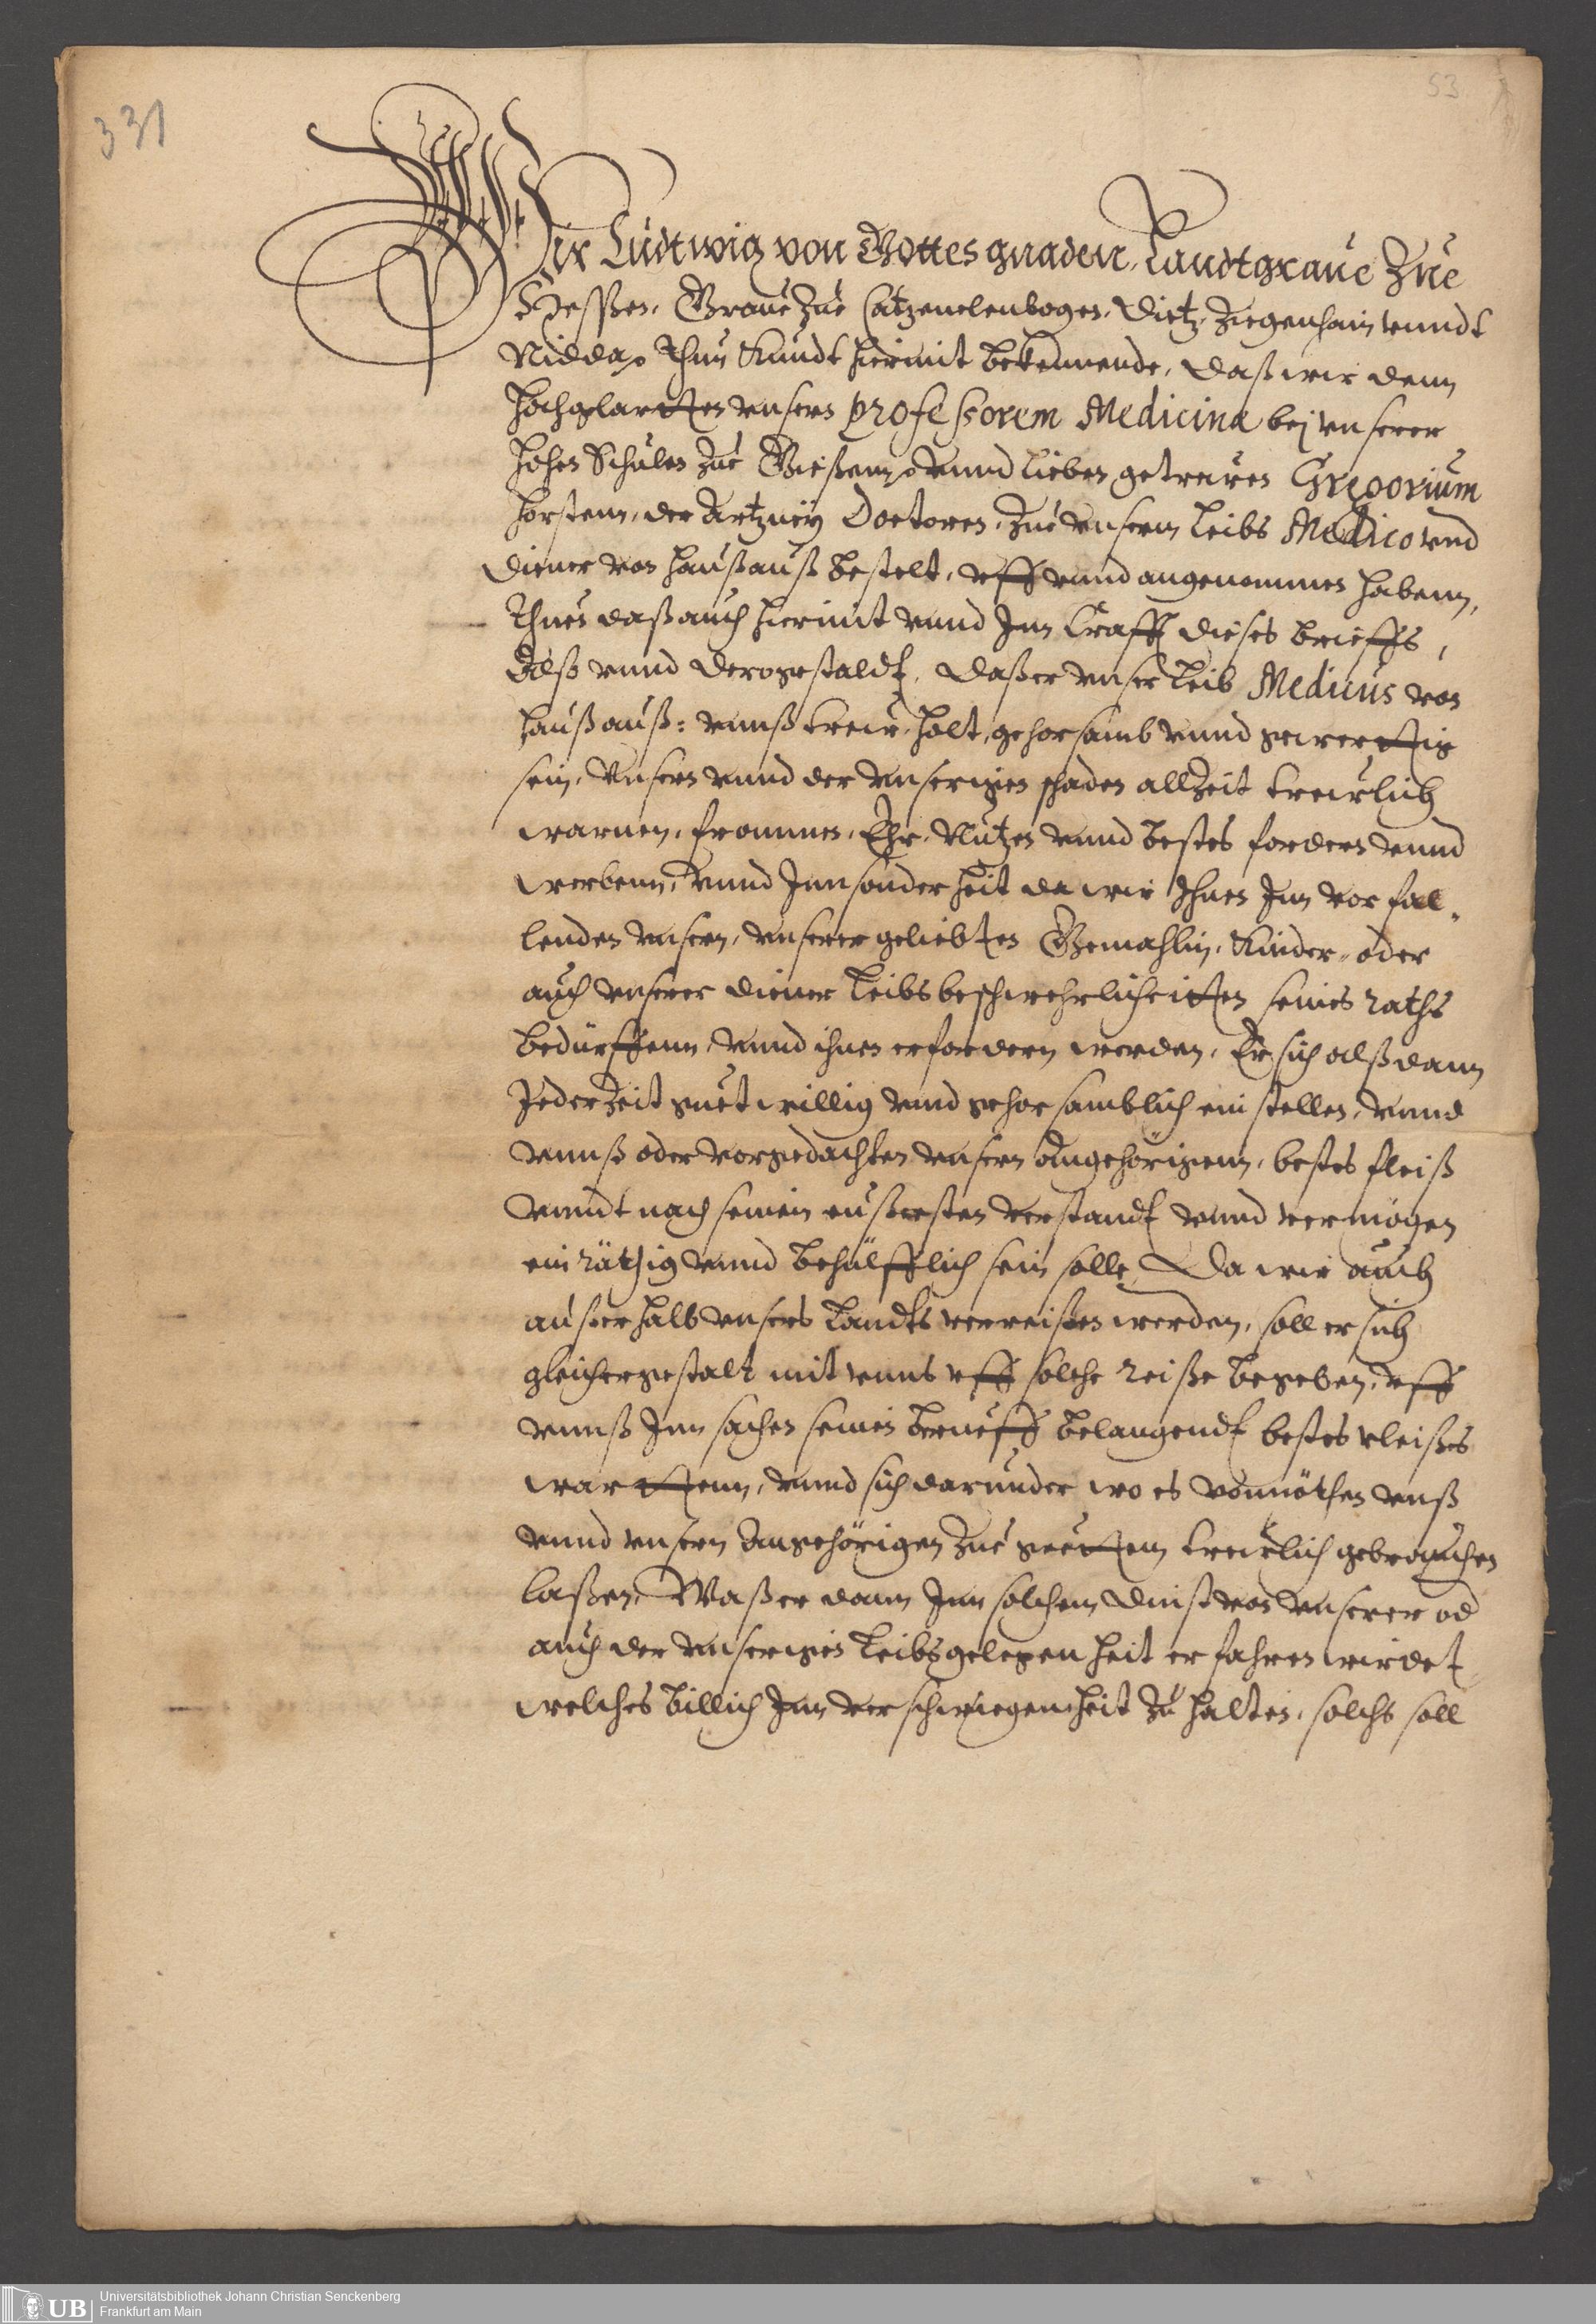 331
53
Wir Ludtwig von Gottes gnaden, Landtgraue Zue
Heßen, Graue Zue Catzenelenbogen, Dietz, Ziegenhain vnndt
Nidda, Thun Kundt hiermit bekennende, daß wir denn
hochglartten vnsern professorem Medicinæ bej vnserer
hohen Schulen zue Gießenn, vnnd lieben getrewen Gregorium
horstenn, der Artzneÿ Doctoren, zue vnserm Leibs Medico vnd
diener von hauß auß bestelt, vff vnnd angenommen habenn,
Thuen daß auch hiermit vnnd Inn Crafft dieses brieffs,
Alß vnnd dergestaldt, daß er vnser Leib Medicus von
hauß auß: vnnß trew, holt, gehorsamb vnnd gewerttig
sein, Vnsern vnnd der vnserigen schaden allzeit trewlich
warnen, frommen, Ehr, Nutzen vnnd bestes fordern vnnd
werbenn, vnnd Innsonderheit da wir Ihnen Inn vorfal-
lenden vnsern, vnserer geliebten Gemahlin, Kinder, oder
auch vnserer diener Leibsbeschwehrlicheitten seines raths
bedürffenn, vnnd ihnen erfordern werden, Er sich alßdann
Jederzeit guetwillig vnnd gehorsamblich einstellen, vnnd
vnnß oder vorgedachten vnsern Angehörigenn, bestes fleiß
vnndt nach seinem eußersten verstandt vnnd vermögen
einräthig vnnd behülfflich sein solle, Da wir auch
außerhalb vnsers Landts verreißen werden, soll er sich
gleichergestalt mit vnns vff solche reiße begeben, vff
vnnß Inn sachen seinen berueff belangendt bestes vleißes
warttenn, vnnd sich darunder wo es vonnöthen vnß
vnnd vnsern Angehörigen zue guettem trewlich gebrauchen
laßen, Waß er dann Inn solchem dinst von vnserer od
auch der vnserigen Leibsgelegenheit erfahren wirdet
welches billich Inn verschwiegenheit zu halten, solchs soll
UB
Universitätsbibliothek Johann Christian Senckenberg
Frankfurt am Main